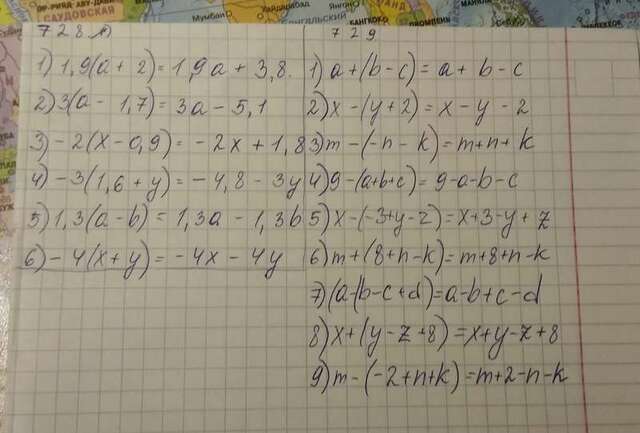 САУДОВСКАЯ
Мумбаи
Хайдарабад
Янгон
Бенгальский
БАНГКОК
МАНИЛА
728
729
1) 1,9(a + 2) = 1,9a + 3,8.
2) 3(a - 1,7) = 3a - 5,1
3) -2(x - 0,9) = -2x + 1,8
4) -3(1,6 + y) = -4,8 - 3y
5) 1,3(a - b) = 1,3a - 1,3b
6) -4(x + y) = -4x - 4y
1) a + (b - c) = a + b - c
2) x - (y + z) = x - y - z
3) m - (-n - k) = m + n + k
4) 9 - (a+b+c) = 9-a-b-c
5) x - (-3+y-z) = x+3-y+z
6) m + (8+n-k) = m+8+n-k
7) (a-(b-c+d) = a-b+c-d
8) x + (y-z+8) = x+y-z+8
9) m - (-2+n+k) = m+2-n-k